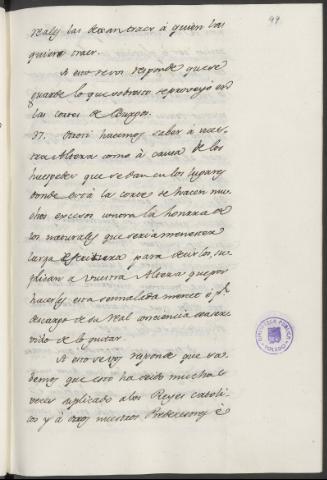 99
reales las dexen traer á quien las
quiera traer.
A esto se vos responde que se
guarde lo que sobre esto se proveyó en
las cortes de Burgos.
37. Otrosi hacemos saber á vues-
tra Alteza como à causa de los
huespedes que se dan en los lugares
donde está la corte se hacen mu-
chos excesos contra la honra de
los naturales que seria menester
larga escritura para decirlos, su-
plican a Vuestra Alteza que por
hacerles esta
descargo de su Real conciencia
de lo quitar.
A esto se vos responde que sa-
bemos que esto ha sido muchas
veces suplicado a los Reyes catoli-
cos y á otros nuestros Predecesores é
BIBLIOTECA PUBLICA
TOLEDO